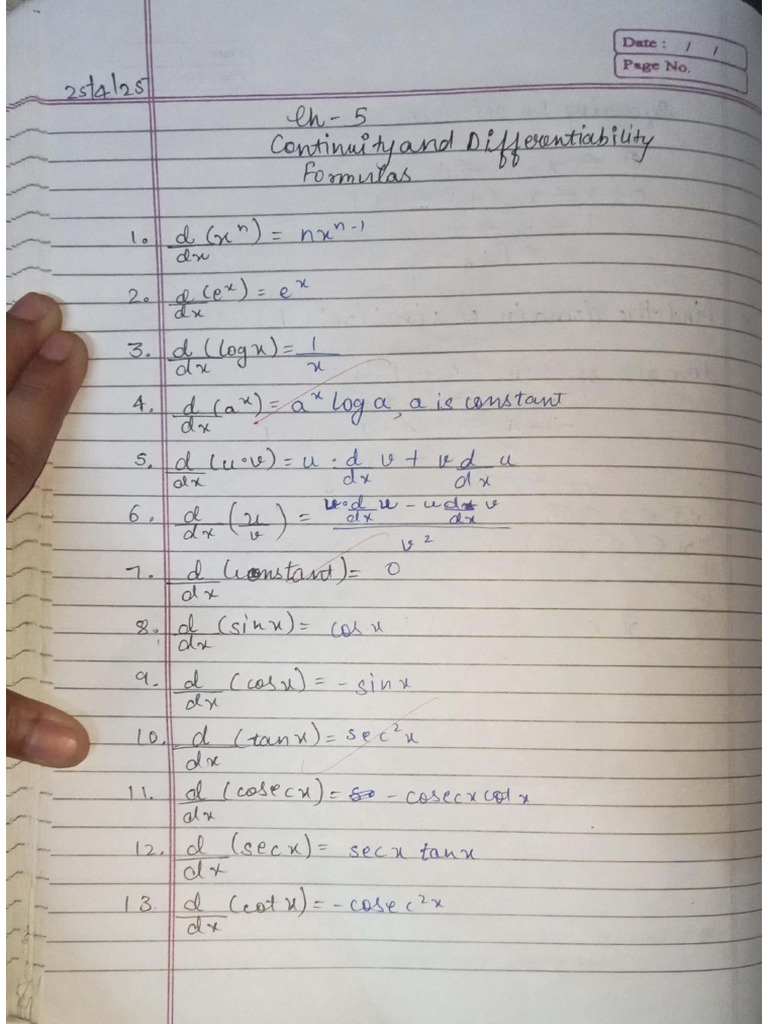 Date : / /
Page No.
25/4/25
Ch - 5
Continuity and Differentiability
Formulas
1. d/dx (xⁿ) = nxⁿ⁻¹
2. d/dx (eˣ) = eˣ
3. d/dx (log x) = 1/x
4. d/dx (aˣ) = aˣ log a, a is constant
5. d/dx (u·v) = u · d/dx v + v d/dx u
6. d/dx (u/v) = (v· d/dx u - u d/dx v)/v²
7. d/dx (constant) = 0
8. d/dx (sin x) = cos x
9. d/dx (cos x) = - sin x
10. d/dx (tan x) = sec²x
11. d/dx (cosec x) = - cosec x cot x
12. d/dx (sec x) = sec x tan x
13. d/dx (cot x) = - cosec²x